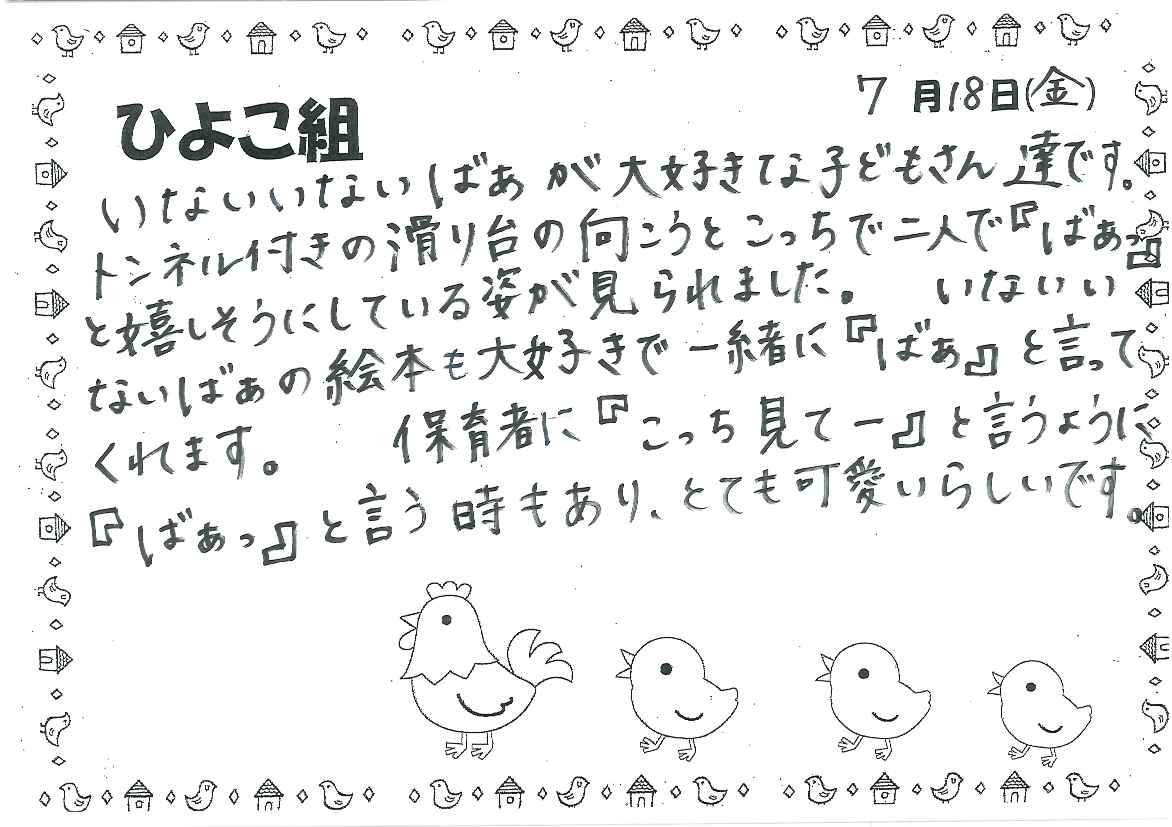 7月18日(金)
ひよこ組
いないいないばぁが大好きな子どもさん達です。
トンネル付きの滑り台の向こうとこっちで二人で『ばぁっ』
と嬉しそうにしている姿が見られました。 いないい
ないばぁの絵本も大好きで一緒に『ばぁ』と言って
くれます。 保育者に『こっち見てー』と言うように
『ばぁっ』と言う時もあり、とても可愛いらしいです。